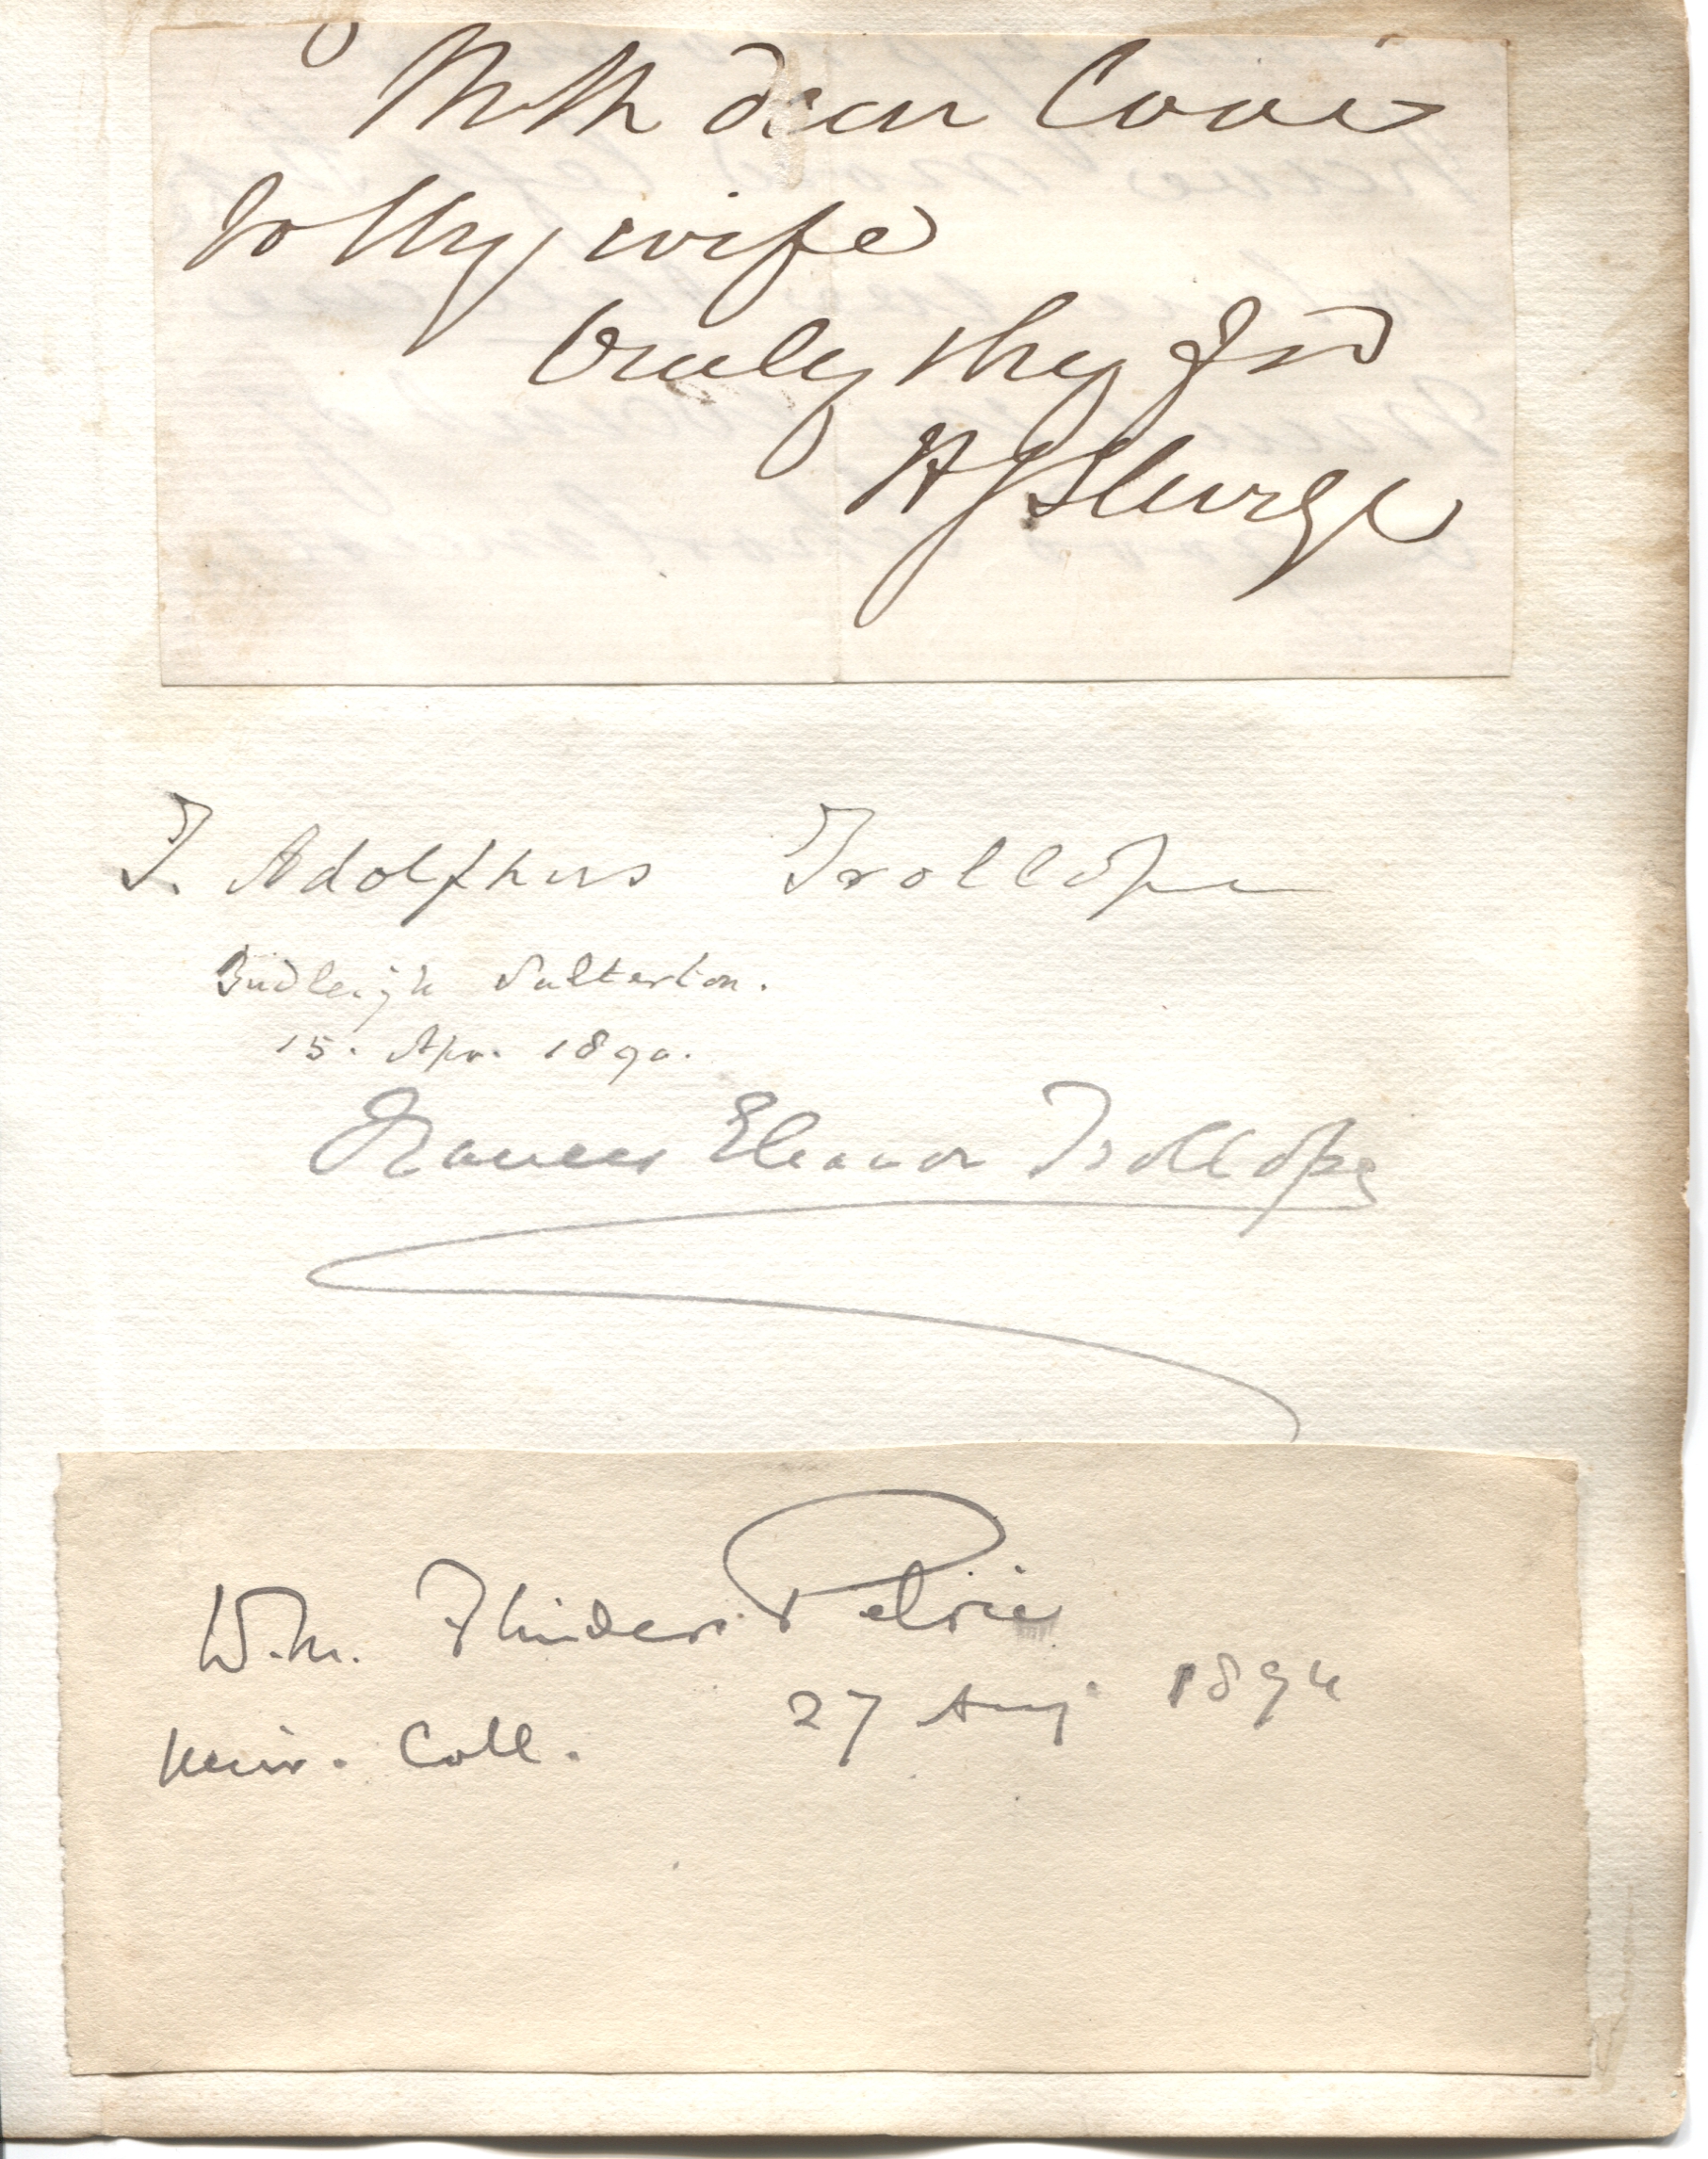 With dear Love
to thy wife
truly thy frd
J Sturge
T. Adolphus Trollope
Budleigh Salterton.
15. Apr. 1890.
Frances Eleanor Trollope
W.M. Flinders Petrie
Univ. Coll. 27 Aug 1894